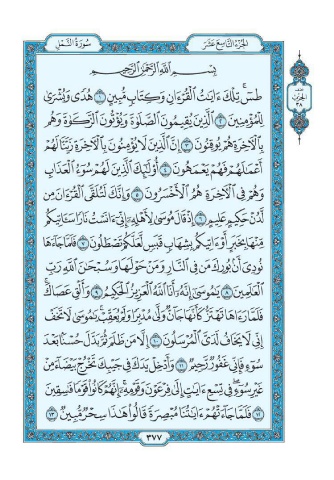 الجزء التاسع عشر
سورة النمل
بِسْمِ اللَّهِ الرَّحْمَٰنِ الرَّحِيمِ
طسٓ ۚ تِلْكَ ءَايَٰتُ ٱلْقُرْءَانِ وَكِتَابٍ مُّبِينٍ ١ هُدًى وَبُشْرَىٰ
لِلْمُؤْمِنِينَ ٢ ٱلَّذِينَ يُقِيمُونَ ٱلصَّلَوٰةَ وَيُؤْتُونَ ٱلزَّكَوٰةَ وَهُم
بِٱلْءَاخِرَةِ هُمْ يُوقِنُونَ ٣ إِنَّ ٱلَّذِينَ لَا يُؤْمِنُونَ بِٱلْءَاخِرَةِ زَيَّنَّا لَهُمْ
أَعْمَٰلَهُمْ فَهُمْ يَعْمَهُونَ ٤ أُوْلَٰٓئِكَ ٱلَّذِينَ لَهُمْ سُوٓءُ ٱلْعَذَابِ
وَهُمْ فِى ٱلْءَاخِرَةِ هُمُ ٱلْأَخْسَرُونَ ٥ وَإِنَّكَ لَتُلَقَّى ٱلْقُرْءَانَ مِن
لَّدُنْ حَكِيمٍ عَلِيمٍ ٦ إِذْ قَالَ مُوسَىٰ لِأَهْلِهِۦٓ إِنِّىٓ ءَانَسْتُ نَارًا سَـَٔاتِيكُم
مِّنْهَا بِخَبَرٍ أَوْ ءَاتِيكُم بِشِهَابٍ قَبَسٍ لَّعَلَّكُمْ تَصْطَلُونَ ٧ فَلَمَّا جَآءَهَا
نُودِىَ أَنۢ بُورِكَ مَن فِى ٱلنَّارِ وَمَنْ حَوْلَهَا وَسُبْحَٰنَ ٱللَّهِ رَبِّ
ٱلْعَٰلَمِينَ ٨ يَٰمُوسَىٰٓ إِنَّهُۥٓ أَنَا ٱللَّهُ ٱلْعَزِيزُ ٱلْحَكِيمُ ٩ وَأَلْقِ عَصَاكَ ۚ
فَلَمَّا رَءَاهَا تَهْتَزُّ كَأَنَّهَا جَآنٌّ وَلَّىٰ مُدْبِرًا وَلَمْ يُعَقِّبْ ۚ يَٰمُوسَىٰ لَا تَخَفْ
إِنِّى لَا يَخَافُ لَدَىَّ ٱلْمُرْسَلُونَ ١٠ إِلَّا مَن ظَلَمَ ثُمَّ بَدَّلَ حُسْنًۢا بَعْدَ
سُوٓءٍ فَإِنِّى غَفُورٌ رَّحِيمٌ ١١ وَأَدْخِلْ يَدَكَ فِى جَيْبِكَ تَخْرُجْ بَيْضَآءَ مِنْ
غَيْرِ سُوٓءٍ ۖ فِى تِسْعِ ءَايَٰتٍ إِلَىٰ فِرْعَوْنَ وَقَوْمِهِۦٓ ۚ إِنَّهُمْ كَانُوا۟ قَوْمًا فَٰسِقِينَ
١٢ فَلَمَّا جَآءَتْهُمْ ءَايَٰتُنَا مُبْصِرَةً قَالُوا۟ هَٰذَا سِحْرٌ مُّبِينٌ ١٣
٣٧٧